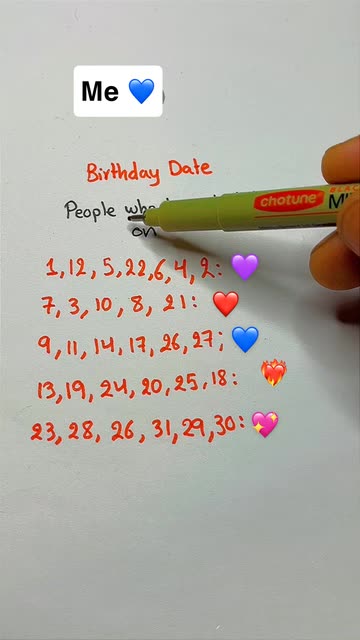 Me 💙
Birthday Date
People who
on
1, 12, 5, 22, 6, 4, 2: 💜
7, 3, 10, 8, 21: ❤️
9, 11, 14, 17, 26, 27; 💙
13, 19, 24, 20, 25, 18: ❤️‍🔥
23, 28, 26, 31, 29, 30: 💖
chotune